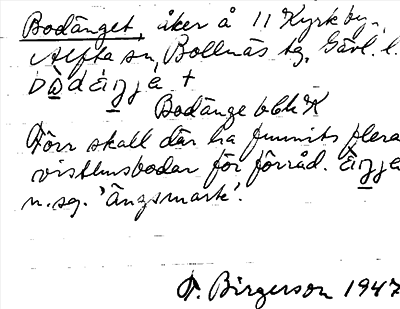 Bodänget, åker å 11 Kyrkby,
Alfta sn, Bollnäs tg, Gävl. l.
Bodänge
Förr skall där ha funnits flera
visthusbodar för förråd.
n. sg. 'Ängsmark'.
T. Birgerson 1947